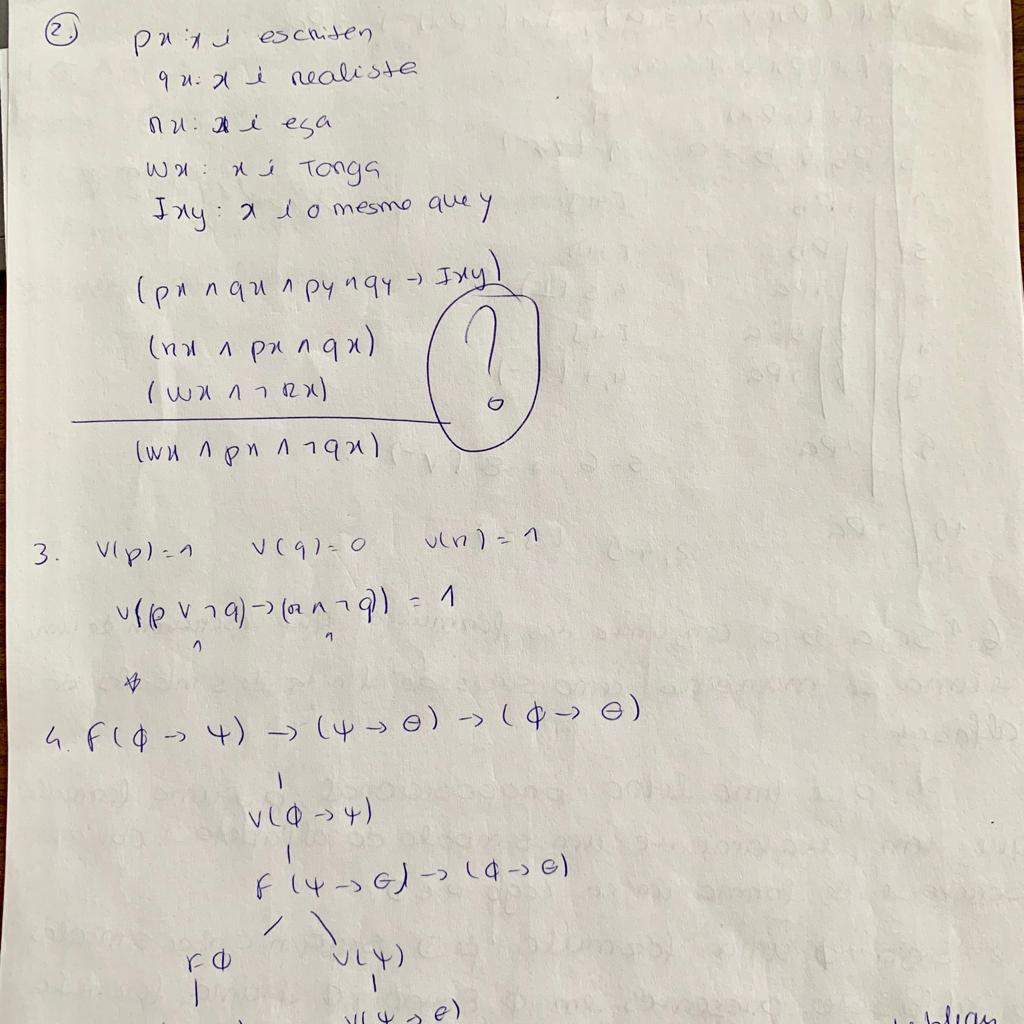 2.
px: x é escritor
qx: x é realista
rx: x é eça
wx: x é Tonga
Ixy: x é o mesmo que y
(px ∧ qx ∧ py ∧ qy → Ixy)
(rx ∧ px ∧ qx)
(wx ∧ ¬ rx)
?
(wx ∧ px ∧ ¬qx)
3. V(p)=1 V(q)=0 V(r)=1
V((p ∨ ¬q)→(r ∧ ¬q)) = 1
1 1
4. F(ϕ → ψ) → (ψ → θ) → (ϕ → θ)
V(ϕ → ψ)
F (ψ → θ) → (ϕ → θ)
Fϕ V(ψ)
V(ψ → θ)